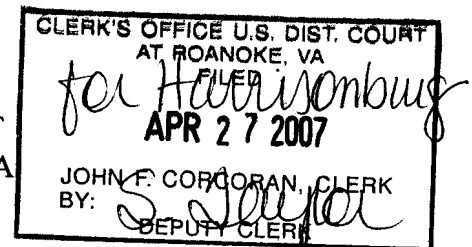 CLERK'S OFFICE U.S. DIST. COURT
AT ROANOKE, VA
FILED
for Harrisonburg
APR 27 2007
A
JOHN F. CORCORAN, CLERK
BY: S.
DEPUTY CLERK